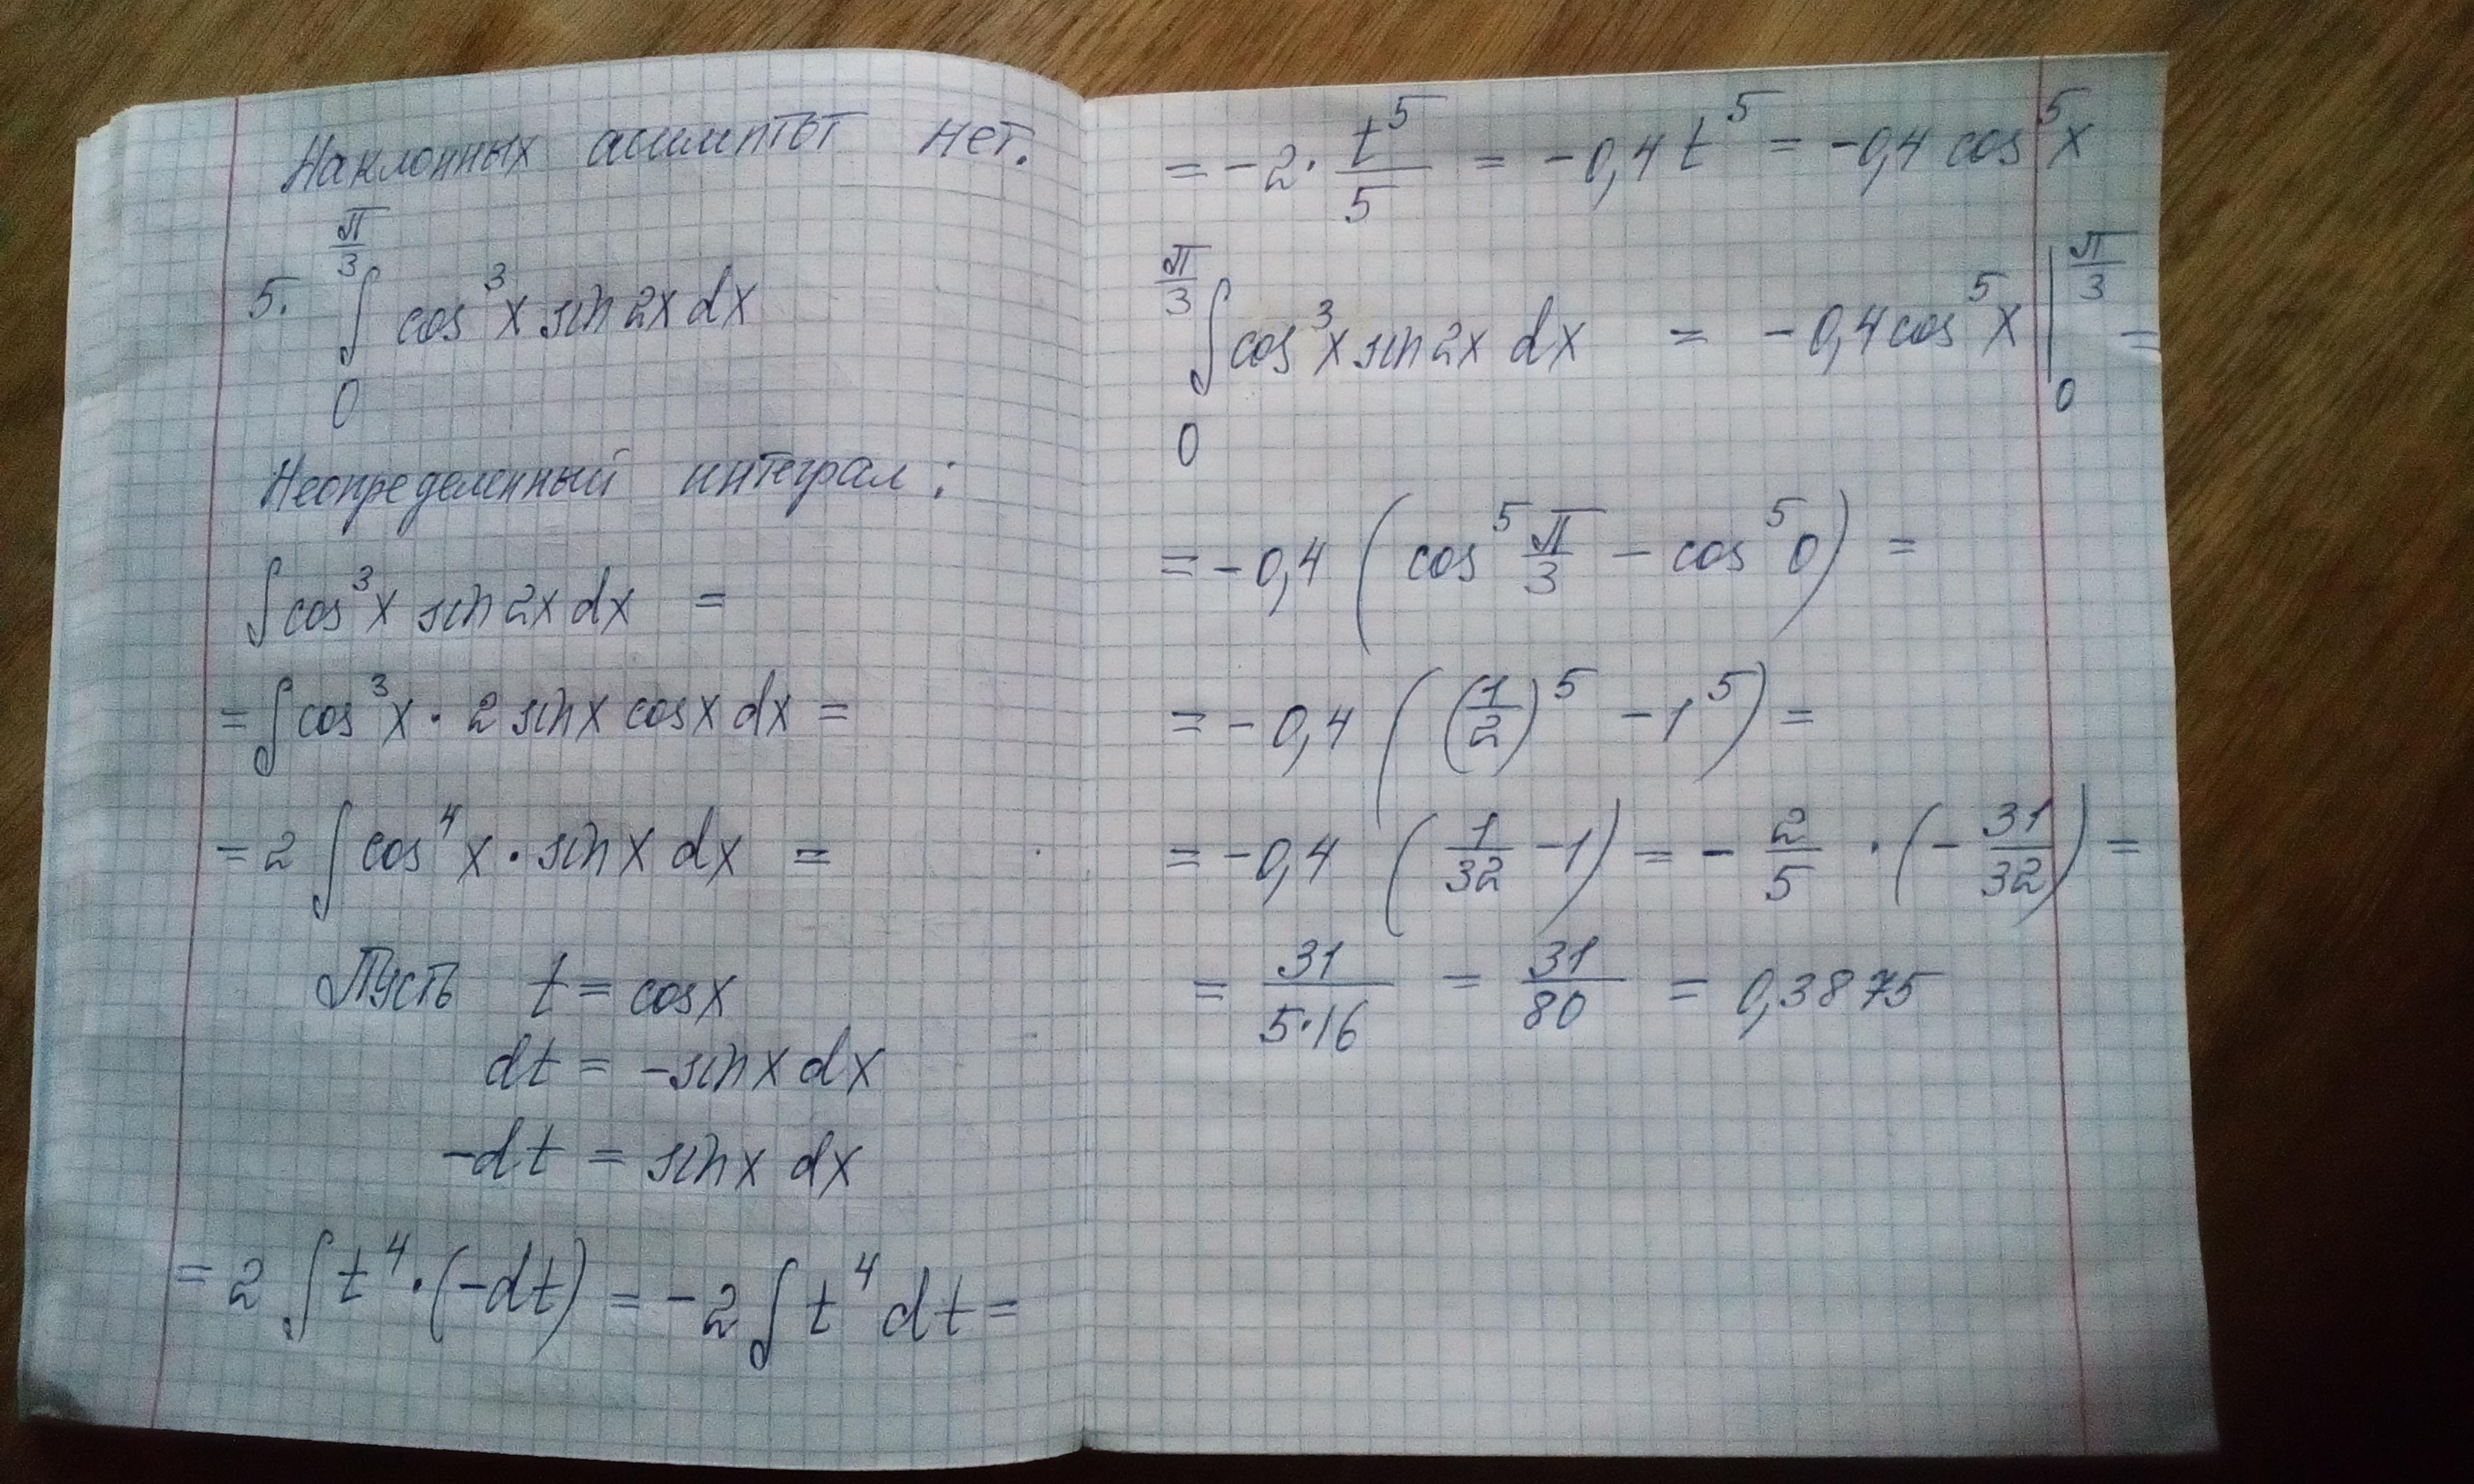 Наклонных асимптот нет.
5. ∫₀^{π/3} cos³x sin2x dx
Неопределенный интеграл:
∫cos³x sin2x dx =
= ∫cos³x · 2 sinx cosx dx =
= 2 ∫cos⁴x · sinx dx =
Пусть t = cosx
dt = -sinx dx
-dt = sinx dx
= 2 ∫t⁴·(-dt) = -2 ∫t⁴ dt =
= -2 · t⁵/5 = -0,4 t⁵ = -0,4 cos⁵x
∫₀^{π/3} cos³x sin2x dx = -0,4cos⁵x |₀^{π/3} =
= -0,4 (cos⁵ π/3 - cos⁵0) =
= -0,4 ((1/2)⁵ - 1⁵) =
= -0,4 (1/32 - 1) = - 2/5 · (- 31/32) =
= 31/(5·16) = 31/80 = 0,3875